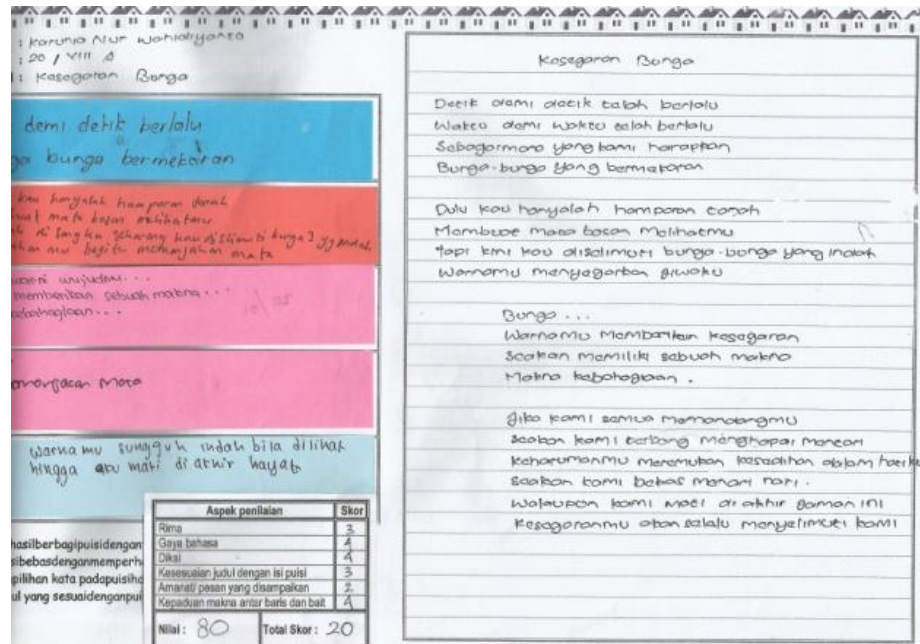 : Karunia Nur Wahidiyanto
: 20 / VIII A
: Kesegaran Bunga
demi detik berlalu
bunga bermekaran
kau hanyalah hamparan
mata bosan melihatmu
di sangka sekarang kau diselimuti bunga2 yg indah
mu begitu memanjakan mata
wujudmu...
memberikan sebuah makna...
kebahagiaan...
mata
warna mu sungguh indah bila dilihat
hingga aku mati di akhir hayat
hasilberbagipuisidengan
sibebasdenganmemperh
pilihan kata padapuisiha
ul yang sesuaidenganpui
Aspek penilaian Skor
Rima 3
Gaya bahasa 4
Diksi 4
Kesesuaian judul dengan isi puisi 3
Amanat/ pesan yang disampaikan 2
Kepaduan makna antar baris dan bait 4
Nilai : 80 Total Skor : 20
Kesegaran Bunga
Detik demi detik telah berlalu
Waktu demi waktu telah berlalu
Sebagaimana yang kami harapkan
Bunga-bunga yang bermekaran
Dulu kau hanyalah hamparan tanah
Membuat mata bosan melihatmu
Tapi kini kau diselimuti bunga-bunga yang indah
Warnamu menyegarkan jiwaku
Bunga ...
Warnamu memberikan kesegaran
Seakan memiliki sebuah makna
Makna kebahagiaan .
Jika kami semua memandangmu
Seakan kami terbang menghapai mencari
Keharumanmu meremukan kesedihan dalam hatiku
Seakan kami bebas menari nari .
Walaupun kami mati di akhir zaman ini
Kesegaranmu akan selalu menyelimuti kami